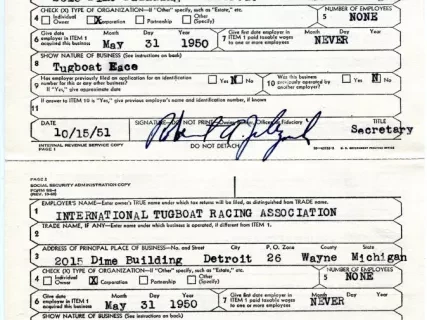 4 CHECK (X) TYPE OF ORGANIZATION—If "Other" specify, such as "Estate", etc.
Individual Owner X Corporation Partnership Other (Specify)
5 NUMBER OF EMPLOYEES
NONE
6 Give date employer in ITEM 1 acquired this business Month Day Year
May 31 1950
7 Give first date employer in ITEM 1 paid taxable wages to one or more employees Month Day Year
NEVER
8 SHOW NATURE OF BUSINESS (See instructions on back)
Tugboat Race
9 Has employer previously filed an application for an identification number for this or any other business? Yes X No
If "Yes", give approximate date
Was this business previously operated by another employer? Yes X No
11 If answer to ITEM 10 is "Yes," give previous employer's name and identification number, if known
DATE
10/15/51
TITLE
Secretary
INTERNAL REVENUE SERVICE COPY
PAGE 1
DO NOT DETACH
PAGE 2
SOCIAL SECURITY ADMINISTRATION COPY
FORM SS-4
1 EMPLOYER'S NAME—Enter owner's TRUE name under which tax returns will be filed, as distinguished from TRADE NAME.
INTERNATIONAL TUGBOAT RACING ASSOCIATION
2 TRADE NAME, IF ANY—Enter name under which business is operated, if different from ITEM 1.
3 ADDRESS OF PRINCIPAL PLACE OF BUSINESS—No. and Street City P. O. Zone County State
2015 Dime Building Detroit 26 Wayne Michigan
4 CHECK (X) TYPE OF ORGANIZATION—If "Other" specify, such as "Estate," etc.
Individual Owner X Corporation Partnership Other (Specify)
5 NUMBER OF EMPLOYEES
NONE
6 Give date employer in ITEM 1 acquired this business Month Day Year
May 31 1950
7 Give first date employer in ITEM 1 paid taxable wages to one or more employees Month Day Year
NEVER
SHOW NATURE OF BUSINESS (See instructions on back)